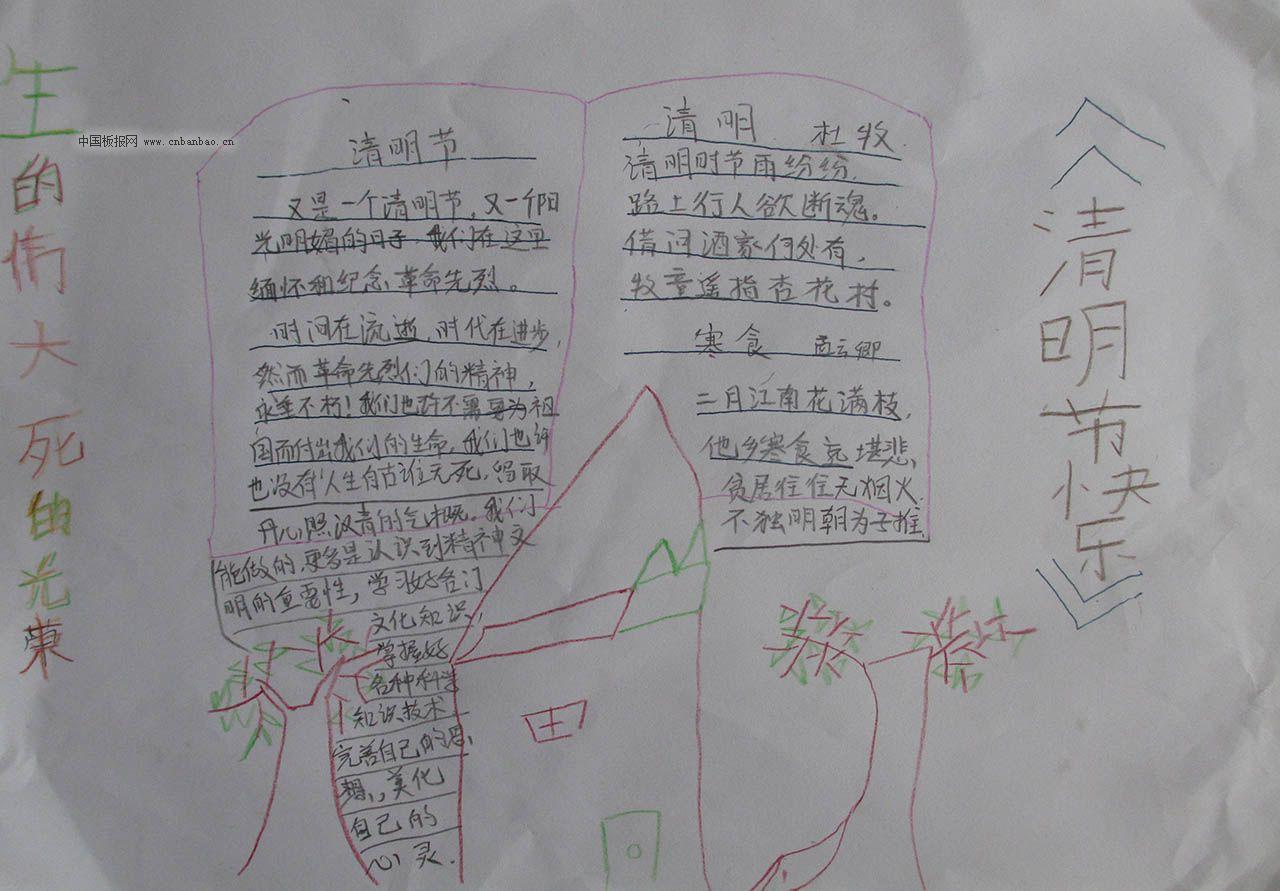 生的伟大死的光荣
中国板报网 www.cnbanbao.cn
清明节
又是一个清明节，又一个阳
光明媚的日子，我们在这里
缅怀和纪念革命先烈。
时间在流逝，时代在进步，
然而革命先烈们的精神，
永垂不朽！我们也许不需要为祖
国而付出我们的生命，我们也许
也没有"人生自古谁无死，留取
丹心照汉青的气概。我们
能做的，更多是认识到精神文
明的重要性，学习好各门
文化知识，
掌握好
各种科学
知识技术，
完善自己的思
想，美化
自己的
心灵.
清明 杜牧
清明时节雨纷纷，
路上行人欲断魂。
借问酒家何处有，
牧童遥指杏花村。
寒食 孟云卿
二月江南花满枝，
他乡寒食远堪悲，
贫居往往无烟火，
不独明朝为子推
《清明节快乐》